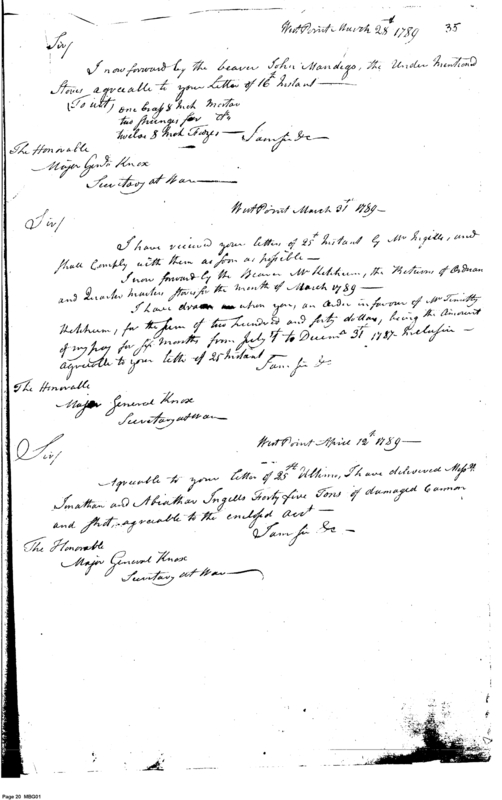 West Point March 28th 1789 35
Sir/
I now forward by the bearer John Mandigo, the under Mentiond
Stores agreeable to your Letter of 16th Instant —
(To wit) one brass 8 Inch Mortar
two for do
twelve 8 Inch Fuzes — I am Sir &c
The Honorable
Major Genl Knox
Secretary at War —
West Point March 31st 1789 —
Sir/
I have received your letters of 25th Instant by Mr and
shall Comply with them as soon as possible —
I now forward by the Bearer Mr Ketchum, the Returns of Ordnan
and Quarter Masters Stores for the month of March 1789 —
I have drawn upon you, an Order in favour of Mr Timothy
Ketchum, for the sum of two hundred and forty dollars, being the Amount
of my pay for six Months from July 1st to Decemr 31st 1787 Inclusive —
agreeable to your letter of 25 Instant I am Sir &c
The Honorable
Major General Knox
Secretary at War —
West Point April 12th 1789 —
Sir/
Agreeable to your letter of 25th Ultimo, I have delivered Messrs
Jonathan and Abiathar Ingells Forty five Tons of damaged Cannon
and shot, agreeable to the enclosed acct —
I am Sir &c —
The Honorable
Major General Knox
Secretary at War —
Page 20 MBG01